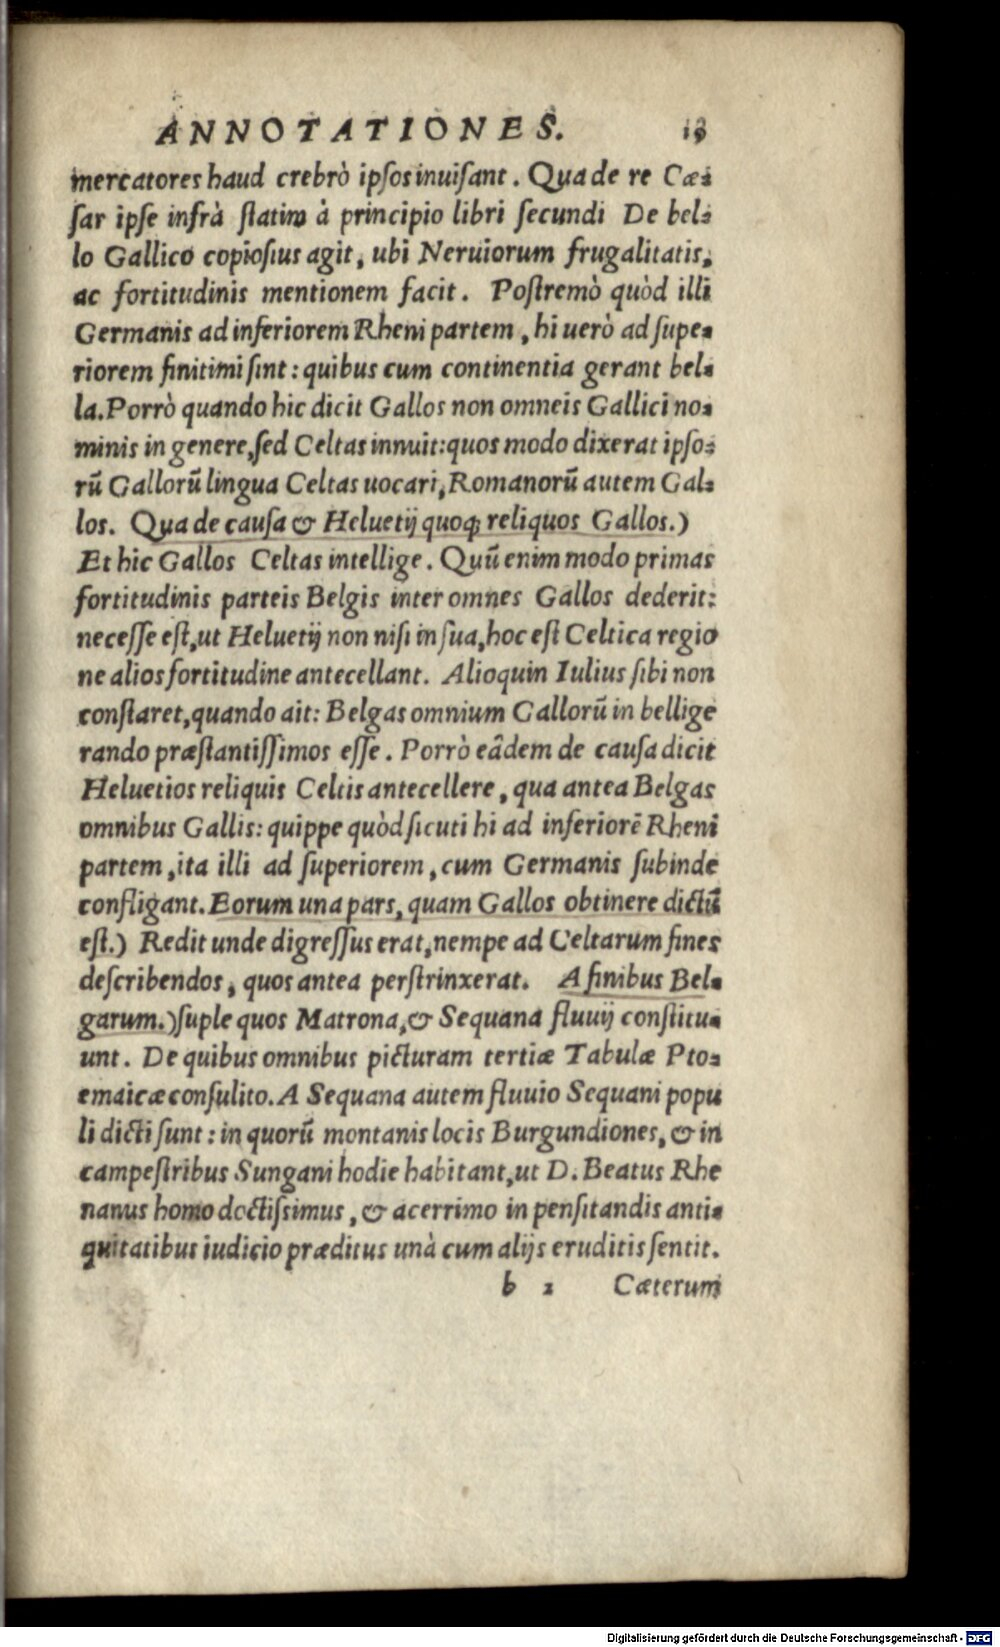 ANNOTATIONES.
mercatores haud crebrò ipsos inuisant. Qua de re Cæ-
sar ipse infrà statim à principio libri secundi De bel-
lo Gallico copiosius agit, ubi Neruiorum frugalitatis,
ac fortitudinis mentionem facit. Postremò quòd illi
Germanis ad inferiorem Rheni partem, hi uerò ad supe-
riorem finitimi sint: quibus cum continentia gerant bel-
la. Porrò quando hic dicit Gallos non omneis Gallici no-
minis in genere, sed Celtas innuit: quos modo dixerat ipso-
rū Gallorū lingua Celtas uocari, Romanorū autem Gal-
los. Qua de causa & Heluetij quoq; reliquos Gallos.)
Et hic Gallos Celtas intellige. Quū enim modo primas
fortitudinis parteis Belgis inter omnes Gallos dederit:
necesse est, ut Heluetij non nisi in sua, hoc est Celtica regio
ne alios fortitudine antecellant. Alioquin Iulius sibi non
constaret, quando ait: Belgas omnium Gallorū in bellige
rando præstantissimos esse. Porrò eâdem de causa dicit
Heluetios reliquis Celtis antecellere, qua antea Belgas
omnibus Gallis: quippe quòd sicuti hi ad inferiorē Rheni
partem, ita illi ad superiorem, cum Germanis subinde
confligant. Eorum una pars, quam Gallos obtinere dictū
est.) Redit unde digressus erat, nempe ad Celtarum fines
describendos, quos antea perstrinxerat. A finibus Bel-
garum.) suple quos Matrona, & Sequana fluuij constitu-
unt. De quibus omnibus picturam tertiæ Tabulæ Pto-
emaicæ consulito. A Sequana autem fluuio Sequani popu
li dicti sunt: in quorū montanis locis Burgundiones, & in
campestribus Sungani hodie habitant, ut D. Beatus Rhe
nanus homo doctissimus, & acerrimo in pensitandis anti-
quitatibus iudicio præditus unà cum alijs eruditis sentit.
b 2 Cæterum
Digitalisierung gefördert durch die Deutsche Forschungsgemeinschaft - DFG